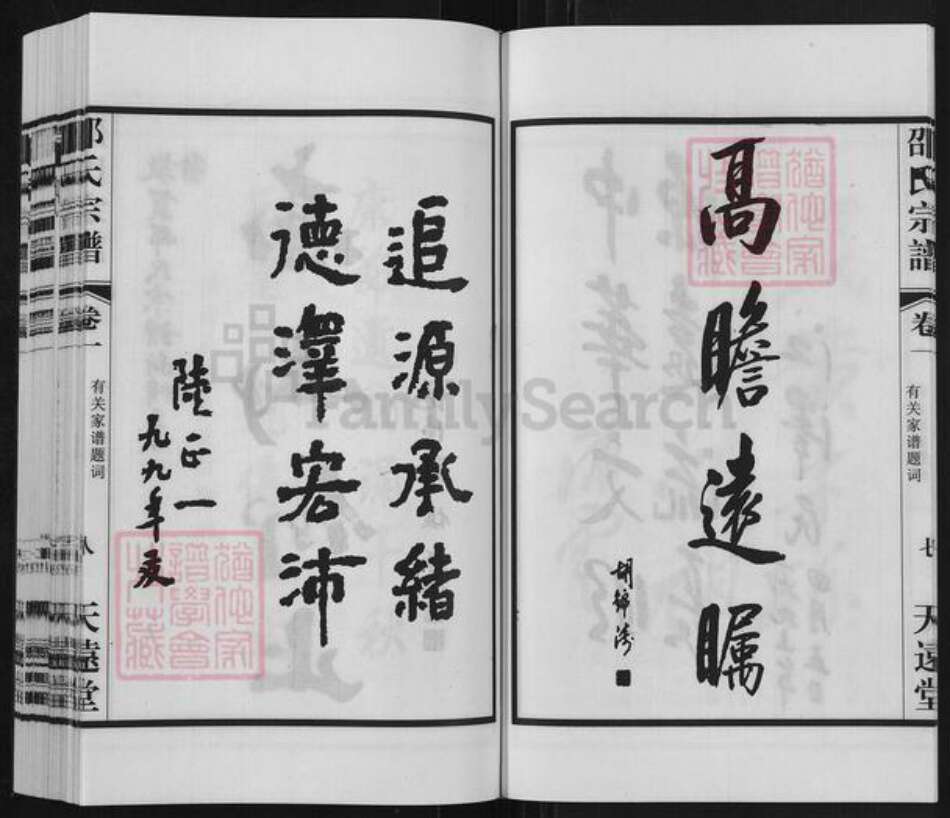 邵氏宗譜
卷一
有关家谱题词
七
天遠堂
高瞻遠瞩
胡锦涛
追源承緒
德澤宏沛
陸正一
九九年夏
邵氏宗譜
卷一
有关家谱题词
八
天遠堂
FamilySearch